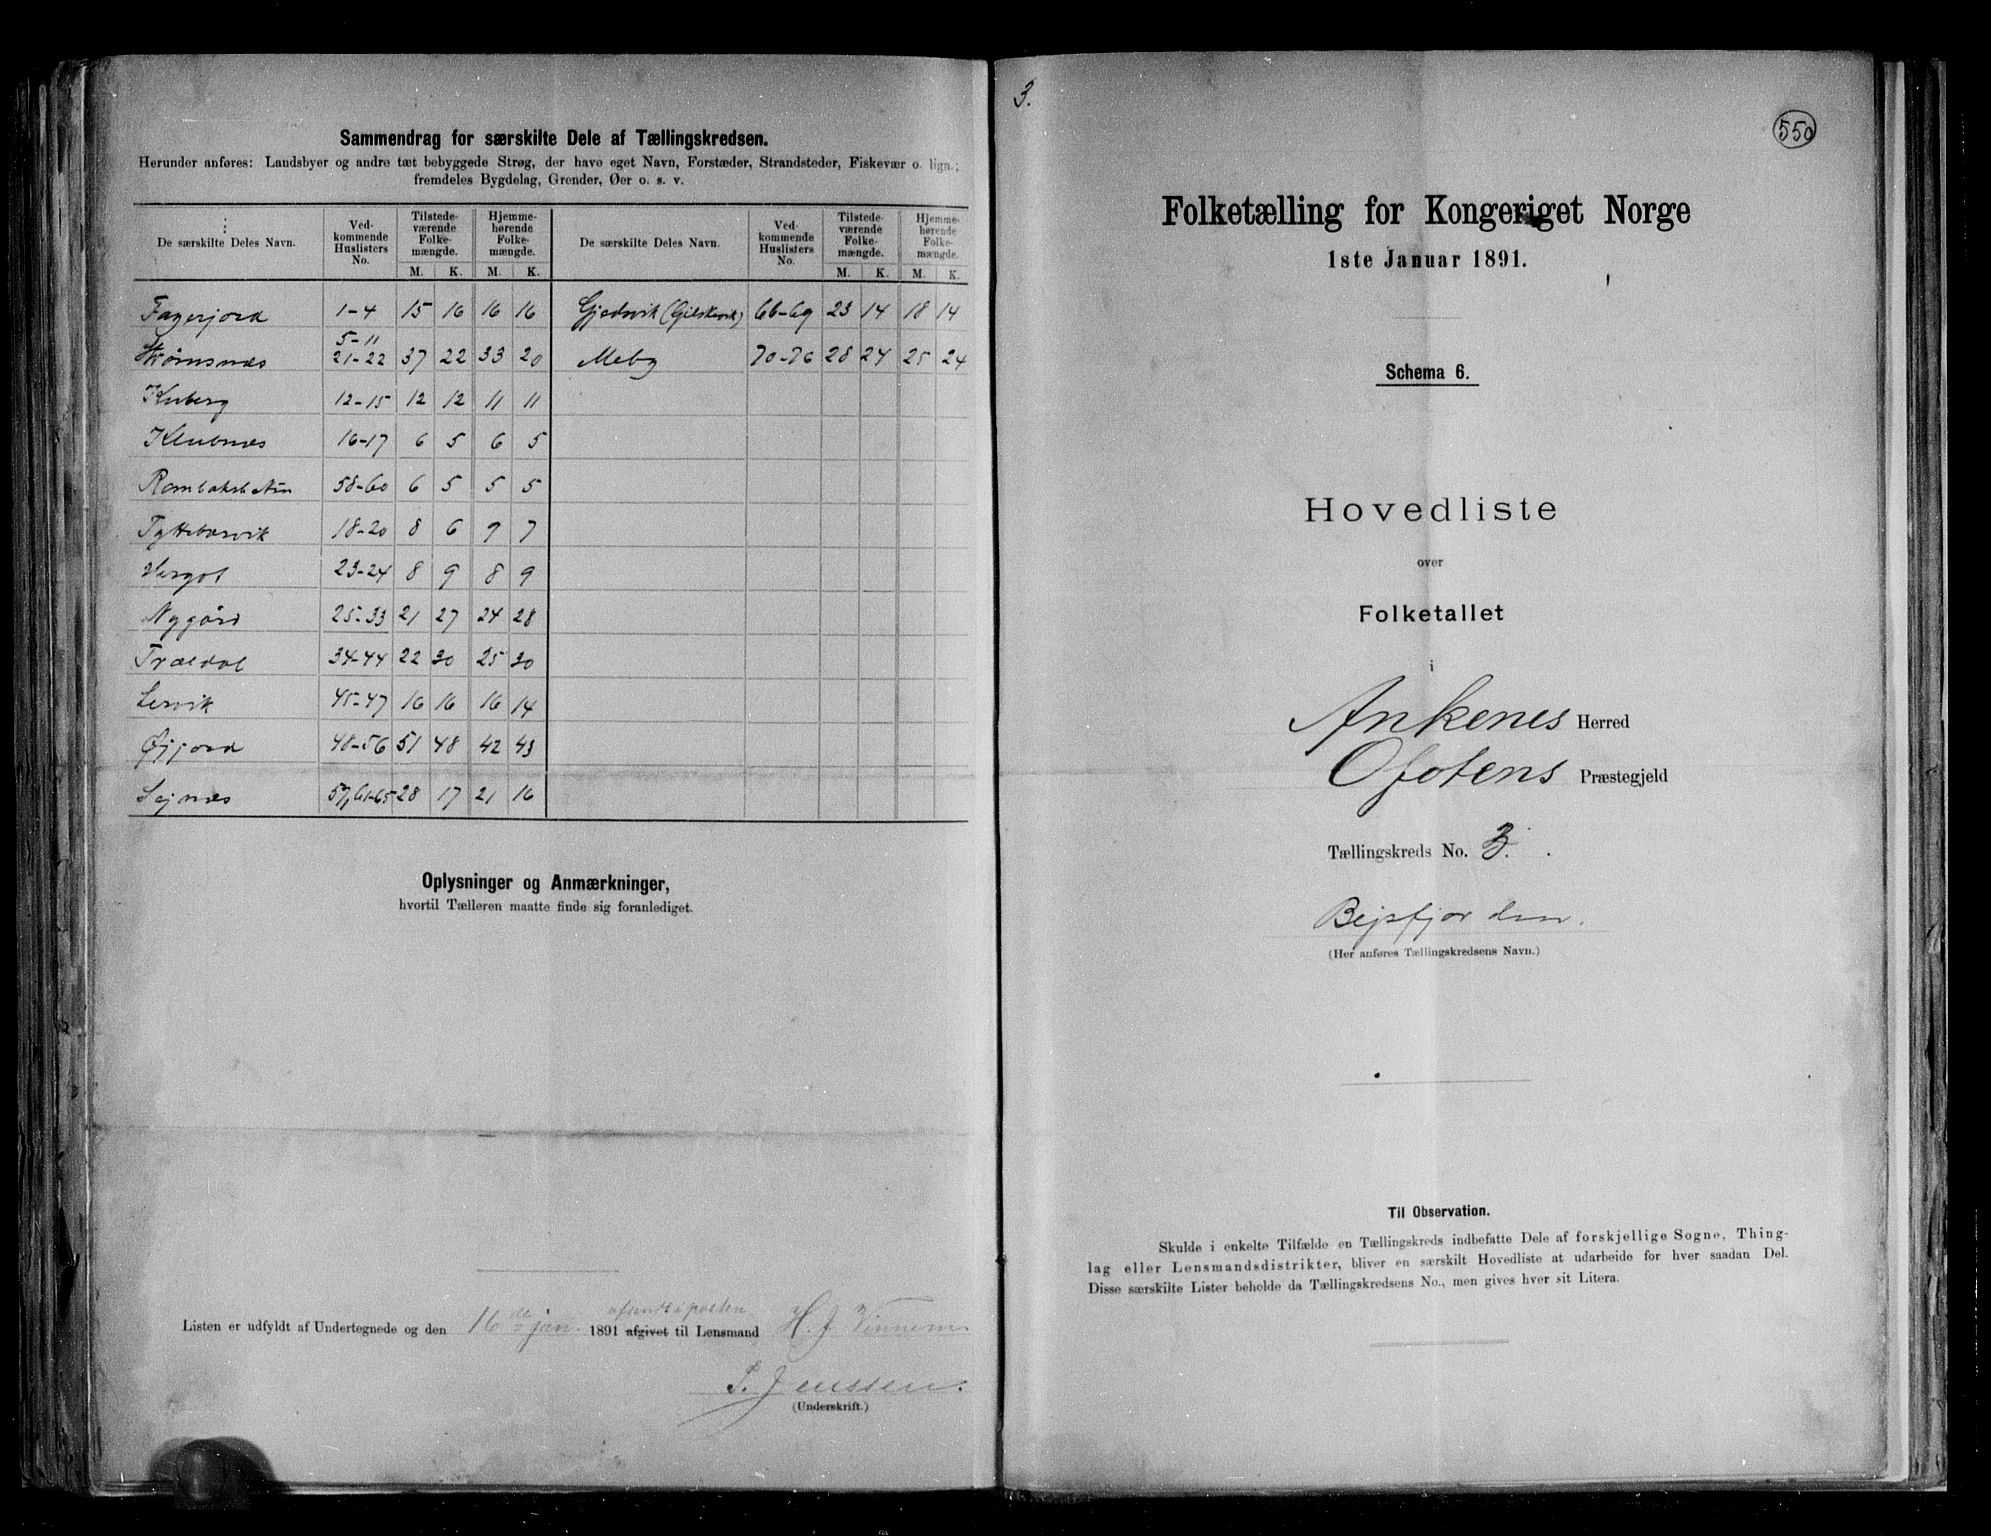 Sammendrag for særskilte Dele af Tællingskredsen.
Herunder anføres: Landsbyer og andre tæt bebyggede Strøg, der have eget Navn, Forstæder, Strandsteder, Fiskevær o. lign.;
fremdeles Bygdelag, Grender, Øer o. s. v.
De særskilte Deles Navn. Ved-kommende Huslisters No. Tilstede-værende Folke-mængde. Hjemme-hørende Folke-mængde. De særskilte Deles Navn. Ved-kommende Huslisters No. Tilstede-værende Folke-mængde. Hjemme-hørende Folke-mængde.
M. K. M. K. M. K. M. K.
Fagerjord 1-4 15 16 16 16 Gjedsvik (Gilskevik) 66-69 23 14 18 14
5-11
Strømsnæs 21-22 37 22 33 20 Meby 70-76 28 24 25 24
Kuberg 12-15 12 12 11 11
Klubnæs 16-17 6 5 6 5
Rombaksbotn 58-60 6 5 5 5
Tyttebærvik 18-20 8 6 9 7
Hergot 23-24 8 9 8 9
Nygård 25-33 21 27 24 28
Trældal 34-44 22 30 25 30
Lervik 45-47 16 16 16 14
Øjjord 48-56 51 48 42 43
Sejnæs 57, 61-65 28 17 21 16
Oplysninger og Anmærkninger,
hvortil Tælleren maatte finde sig foranlediget.
afsendt i posten
Listen er udfyldt af Undertegnede og den 16de jan. 1891 afgivet til Lensmand H. J. Vinnem
P. Jenssen.
(Underskrift.)
3.
550
Folketælling for Kongeriget Norge
1ste Januar 1891.
Schema 6.
Hovedliste
over
Folketallet
i
Ankenes Herred
Ofotens Præstegjeld
Tællingskreds No. 3.
Bejsfjorden.
(Her anføres Tællingskredsens Navn.)
Til Observation.
Skulde i enkelte Tilfælde en Tællingskreds indbefatte Dele af forskjellige Sogne, Thing-
lag eller Lensmandsdistrikter, bliver en særskilt Hovedliste at udarbeide for hver saadan Del.
Disse særskilte Lister beholde da Tællingskredsens No., men gives hver sit Litera.